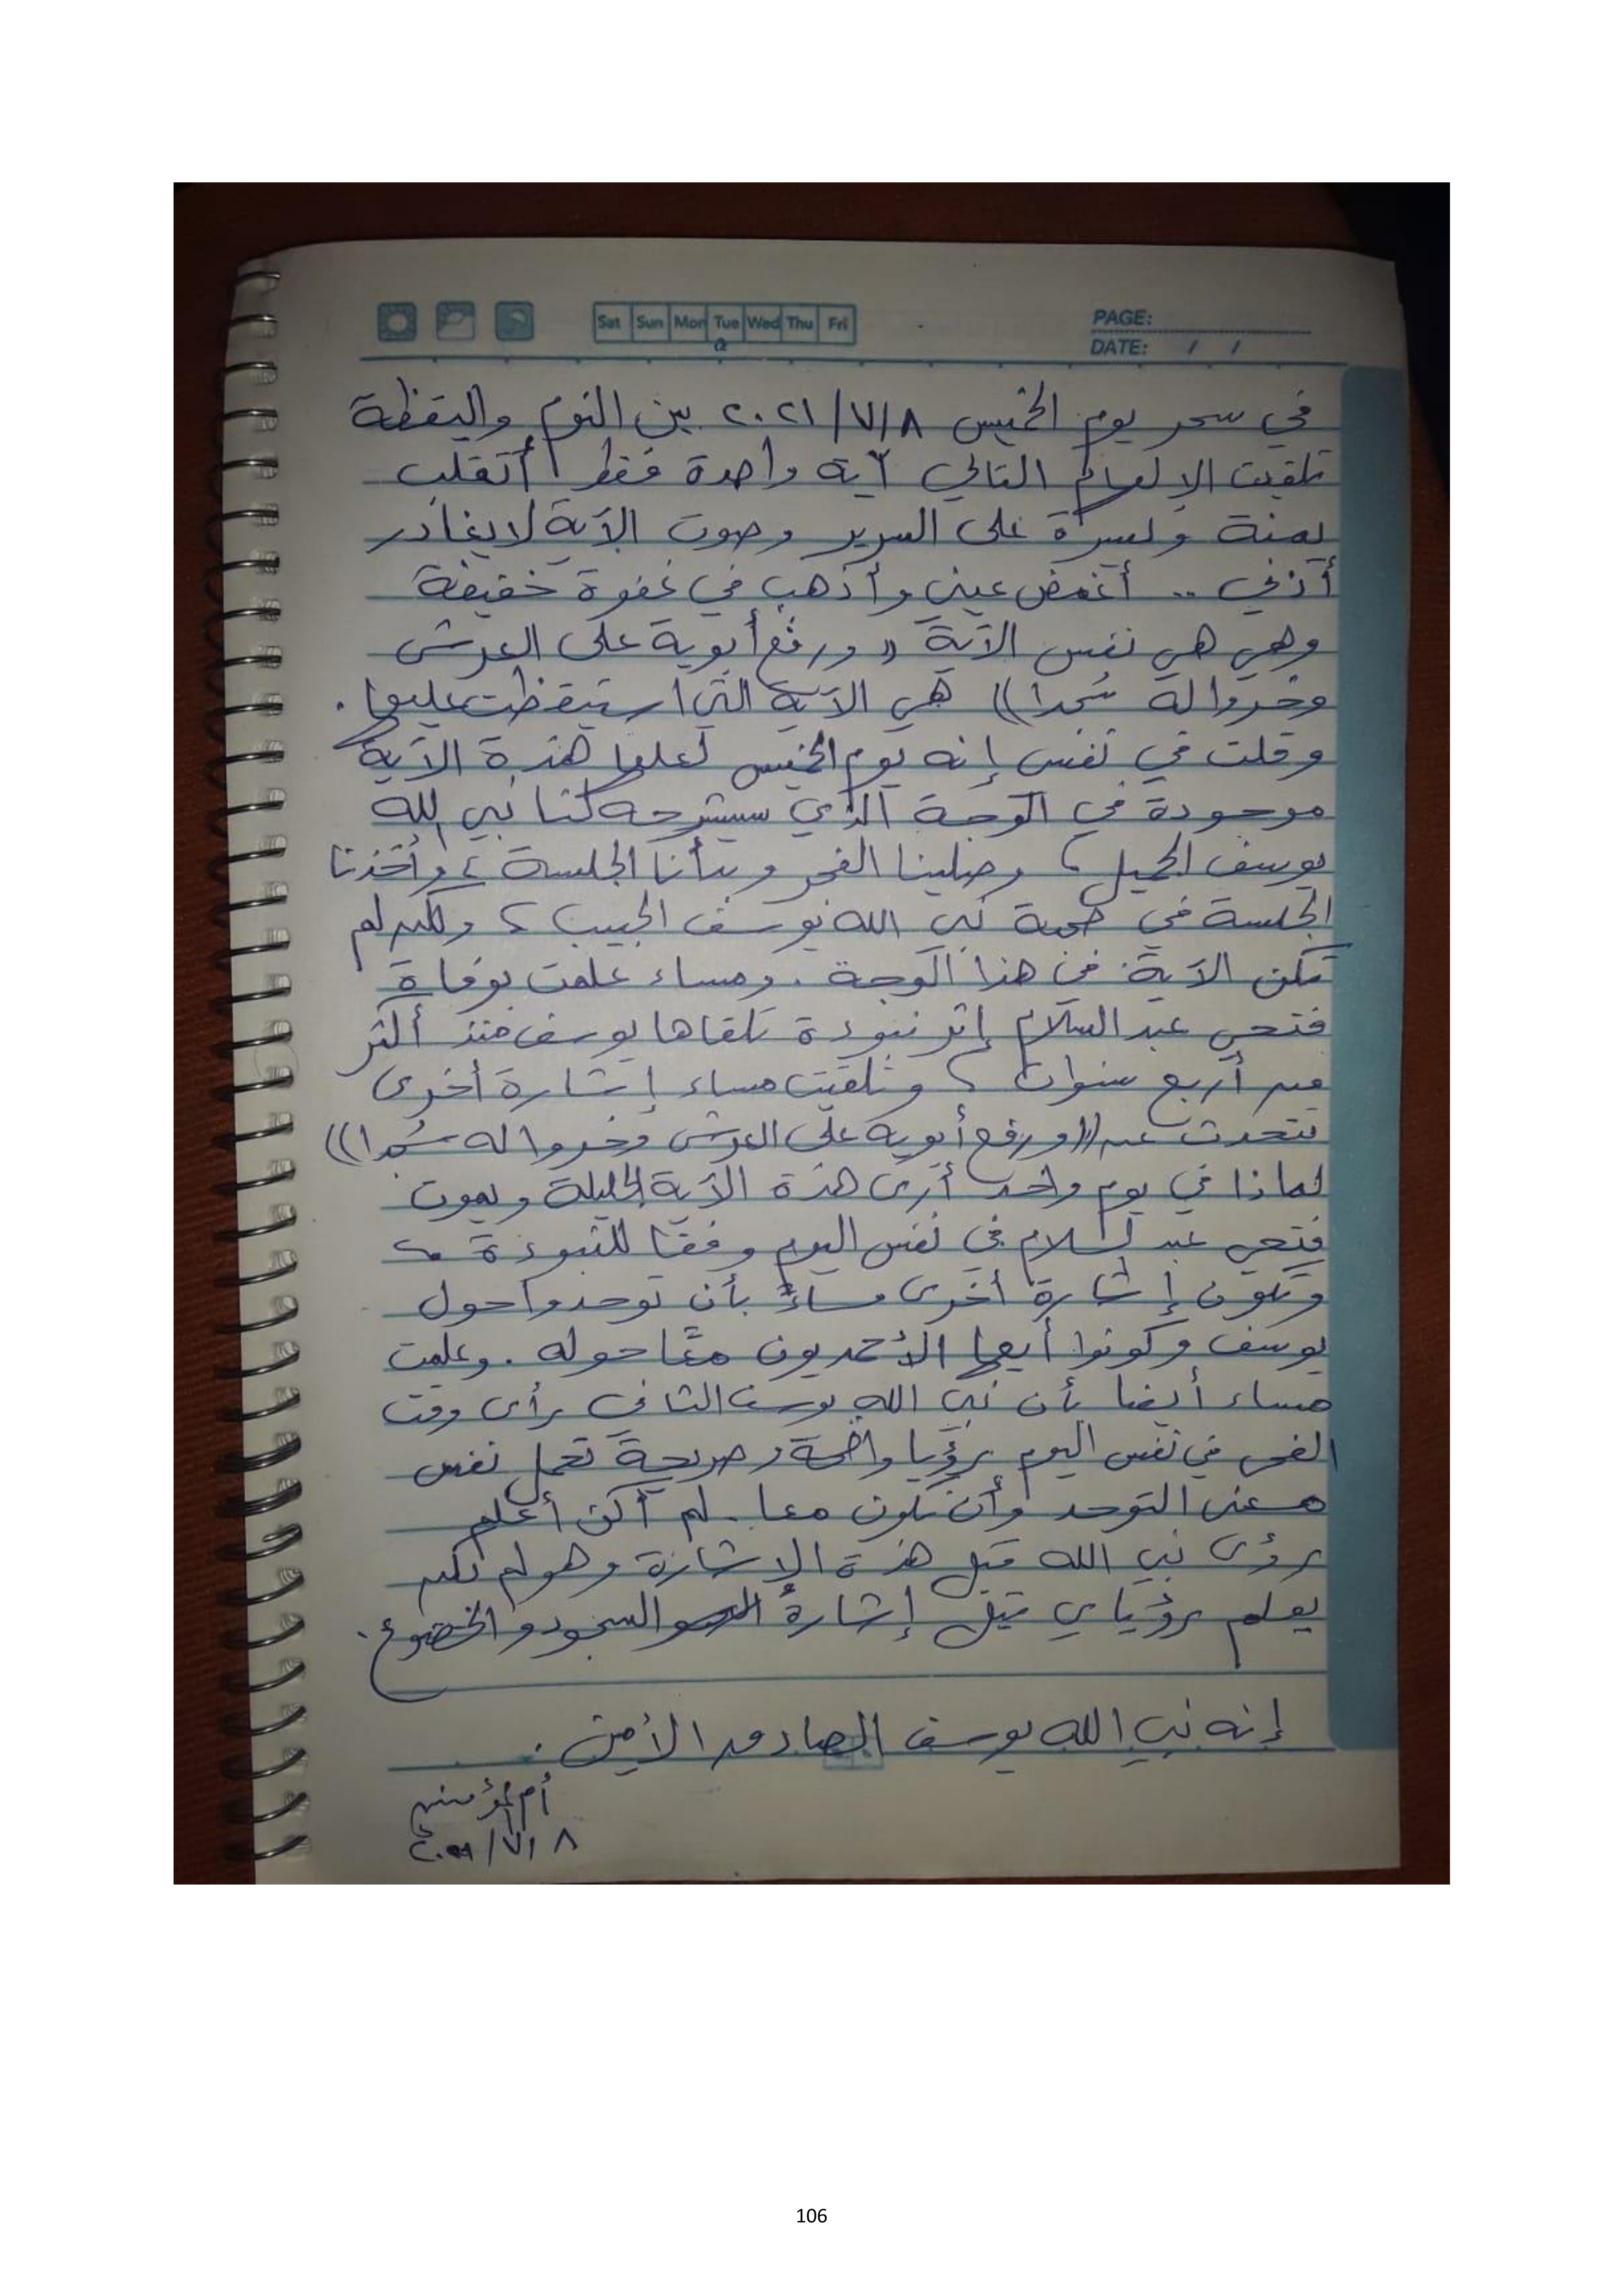 Sat Sun Mon Tue Wed Thu Fri
PAGE:
DATE: / /
في سحر يوم الخميس ٢٠٢١/٧/٨ بين النوم واليقظة
تلقيت الإلهام التالي آية واحدة فقط أتقلب
يمنة ويسرة على السرير وصوت الآية لا يغادر
أذني .. أغمض عيني وأذهب في غفوة خفيفة
وهي هي نفس الآية ((ورفع أبويه على العرش
وخروا له سُجدا)) هي الآية التي استيقظت عليها .
وقلت في نفسي إنه يوم الخميس لعلها هذه الآية
موجودة في الوجه الذي سيشرحه لنا نبي الله
يوسف الجميل ، وصلينا الفجر وبدأنا الجلسة ، وأخذنا
الجلسة في صحبة نبي الله يوسف الحبيب ، ولكن لم
تكن الآية في هذا الوجه . ومساء علمت بوفاة
فتحي عبد السلام إثر نبوءة تلقاها يوسف منذ أكثر
من أربع سنوات ، وتلقيت مساء إشارة أخرى
تتحدث عن ((ورفع أبويه على العرش وخروا له سُجدا))
لماذا في يوم واحد أرى هذه الآية الجليلة ويموت
فتحي عبد السلام في نفس اليوم وفقا للنبوءة ،
وتكون إشارة أخرى مساءً بأن توحدوا حول
يوسف وكونوا أيها الأحمديون معًا حوله . وعلمت
مساء أيضا بأن نبي الله يوسف الثاني رأى وقت
الفجر في نفس اليوم رؤيا واضحة وصريحة تحمل نفس
معنى التوحد وأن نكون معا . لم أكن أعلم
برؤى نبي الله قبل هذه الإشارة وهو لم يكن
يعلم رؤياي قبل إشارة السجود والخضوع .
إنه نبي الله يوسف الصادق الأمين .
أم المؤمنين
٢٠٢١/٧/٨
106